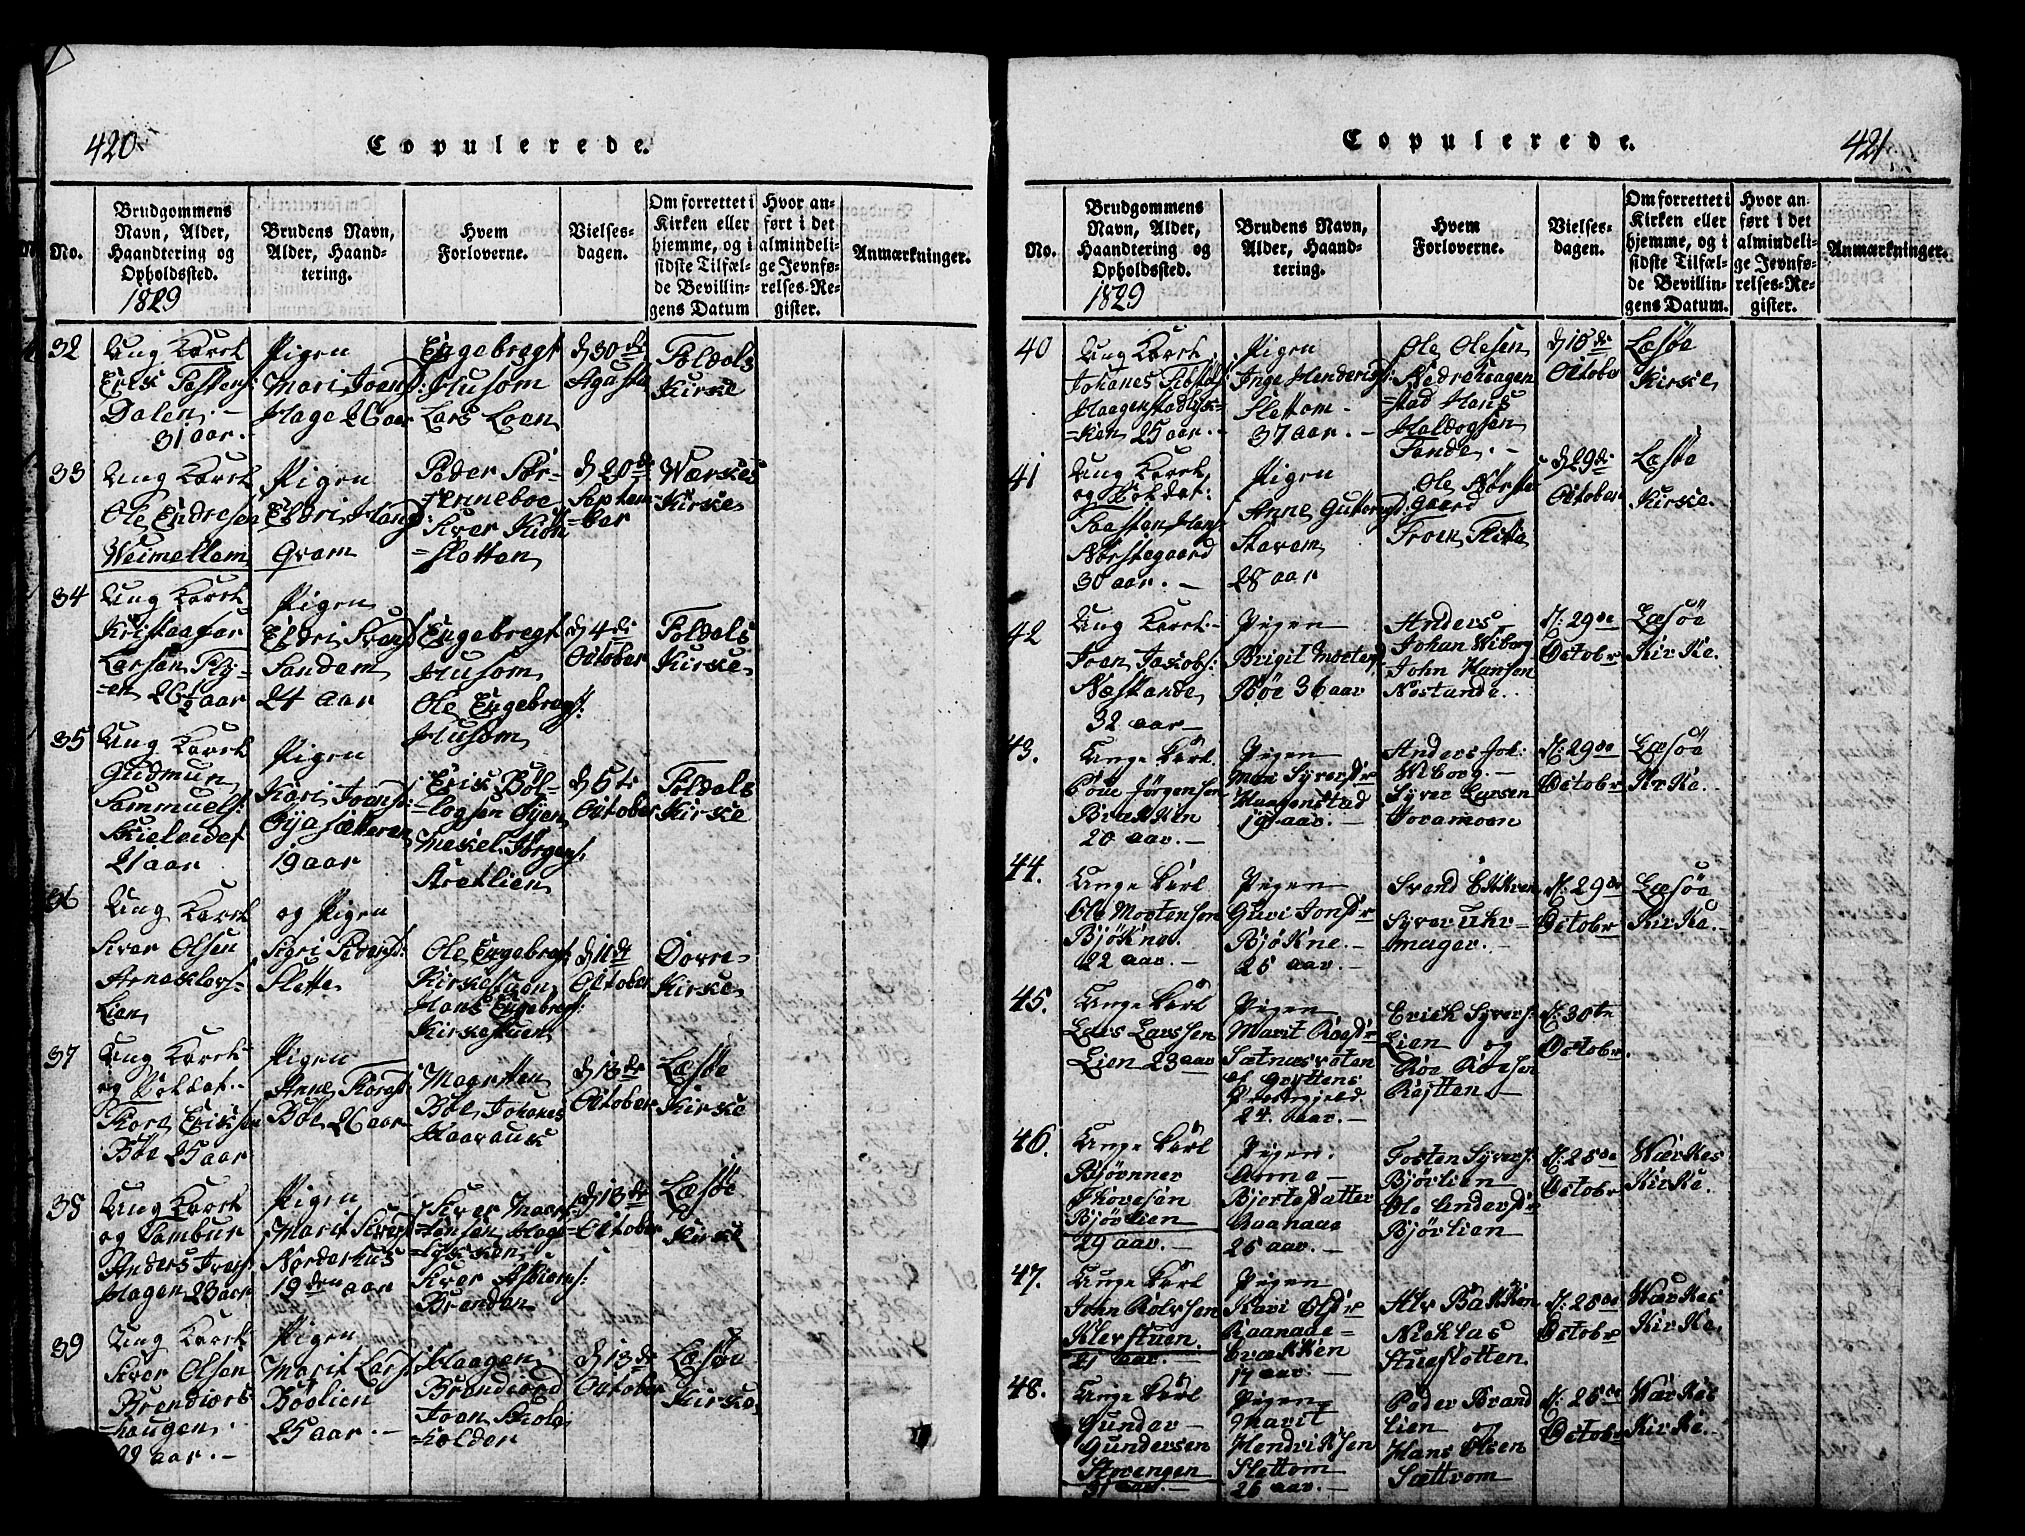 420
Copulerede.
No.
Brudgommens Navn, Alder, Haandtering og Opholdssted.
Brudens Navn, Alder, Haandtering.
Hvem Forloverne.
Vielsesdagen.
Om forrettet i Kirken eller hjemme, og i sidste Tilfælde Bevillingens Datum
Hvor anført i det almindelige Jevnførelses-Register.
Anmærkninger.
1829
32
Ung Karl
Erik
Dalen.
31 aar.
Pigen
Mari Joensd:
Hage 26 aar
Engebregt
Husom
Lars Loen
d 30 de
Agust
Foldals
Kirke
33
Ung Karl
Ole Endresen
Weimellem
Pigen
Eldri
Qvam
Peder
Siver
=slotten
d 20 de
Septem
=ber
Wærkes
Kirke
34
Ung Karl
Larsen
=en 26½ aar
Pigen
Eldri
Sandem
24 aar
Engebregt
Husom
Ole Engebregts:
Husom
d 4 de
October
Foldals
Kirke
35
Ung Karl
Gudmun
Sammuels:
21 aar
Pigen
Kari Joens:
Øyasæteren
19 aar
Erik Böl
=logsen Øyen
Mekel Jörgens:
Stretlien
d 5 te
October
Foldals
Kirke
36
Ung Karl
Siver Olsen
Lien
og Pigen
Sigri Pedersd:
Slette
Ole Engebregts:
Kirkestuen
Hans Engebregts:
Kirkestuen
d 11 te
October
Dovre
Kirke
37
Ung Karl
og Soldat
Tore Eriksen
Böe 25 aar
Pigen
Anne
Böe 26 aar
Böe Johanes
d 13 de
October
Læsöe
Kirke
38
Ung Karl
og Tambur
Anders
Hagen 23 aar
Pigen
Marit Siversd
Norderhus
19 den aar
Siver
Siver
Brenden
d 13 de
October
Læsöe
Kirke
39
Ung Karl
Siver Olsen
=haugen.
aar.
Pigen
Marit Larsd
Böelien
25 aar.
Haagen
Joen Skole
=holder
d 13 de
October
Læsöe
Kirke
421
Copulerede.
No.
Brudgommens Navn, Alder, Haandtering og Opholdssted.
Brudens Navn, Alder, Haandtering.
Hvem Forloverne.
Vielsesdagen.
Om forrettet i Kirken eller hjemme, og i sidste Tilfælde Bevillingens Datum.
Hvor anført i det almindelige Jevnførelses-Register.
Anmærkninger.
1829
40
Ung Karl
Johanes
=ken 25 aar.
Pigen
Inge Hendrigsd:
Slettom
37 aar.
Ole Olesen
Nedrehaagen
=stad Hans
Haldogsen
Sande.
d 18 de
October
Læsöe
Kirke
41
Ung Karl
og Soldat:
Paasten Hans:
Norstegaard
30 aar.
Pigen
Anne Guttormsd:
Stavem
28 aar
Ole Norste
gaard
d 29 de
October
Læsöe
Kirke.
42
Ung Karl
Joen Jakobs:
Næstande
32 aar
Pigen
Brigit Mortensd
Böe 36 aar
Anders
Johan Wiborg
John Hansen
Nostande.
d: 29 de
Octobr
Læsöe
Kirke.
43.
Unge Karl
Poue Jörgensen
Brækken
20 aar.
Pigen
Mari Syversdr
Haagenstad
19 aar.
Anders Joh:
Wiborg.
Syver Larsen
Joramoen
d: 29 de
Octobr
Læsöe
Kirke.
44.
Unge Karl
Ole Mortensen
Bjökne.
22 aar.
Pigen
Guri Jonsdr
Bjökne.
25 aar.
Svend Ekkren
Syver Uhr-
mager.
d: 29 de
Octobr
Læsöe
Kirke.
45.
Unge Karl
Lars Larssen
Lien 23 aar
Pigen
Marit Roesdr
Sætnasroten
af Gryttens
Præstegjeld
24. aar.
Erick Syvers:
Lien og
Roe Roesen
d: 30 te
Octobr.
46.
Unge Karl
Bjönner
Thovesen
Björlien
29 aar.
Pigen.
Anna
Bjertesdatter
Raanaae
25 aar.
Tosten Syvers:
Björlien
Ole Andersdr
Björlien
d: 25 de
Octobr
Wærkes
Kirke.
47.
Unge Karl
John Rolvsen
Klevstuen.
21 aar.
Pigen
Kari Olsdr
Raanaae=
brækken
17 aar.
Alv Bakken
Nicklas
Stueflotten
d: 25 de
Octobr
Wærkes
Kirke,
48.
Unge Karl
Gunder
Gundersen
Stovengen
31 aar.
Pigen
Marit
Hendriksen
Slettom
26 aar.
Peder Brand
lien og
Hans Olsen
Sættrom
d: 25 de
Octobr
Wærkes
Kirke.